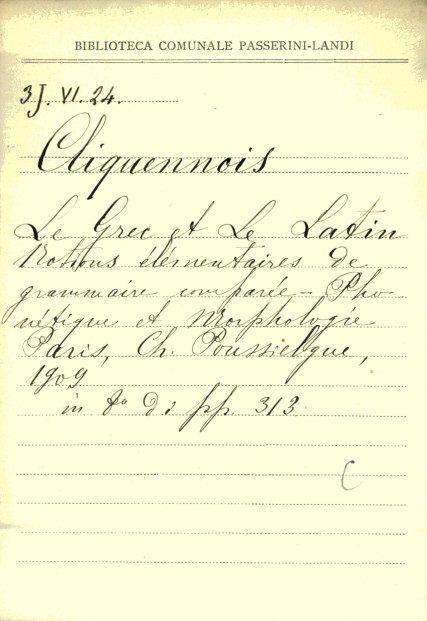 BIBLIOTECA COMUNALE PASSERINI-LANDI
3J. VI. 24.
Cliquennois
Le Grec et Le Latin
Notions élémentaires de
grammaire comparée - Pho-
nétique et Morphologie
Paris, Ch. Poussielgue,
1909
in 8° di pp. 313
C